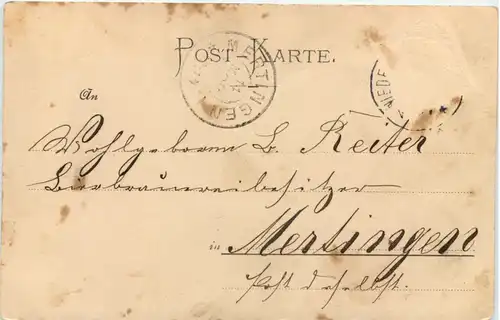 POST KARTE.
MERTINGEN
NIEDE
An
Wohlgeboren L. Reiter
Bierbrauereibesitzer
in Mertingen
Post daselbst.